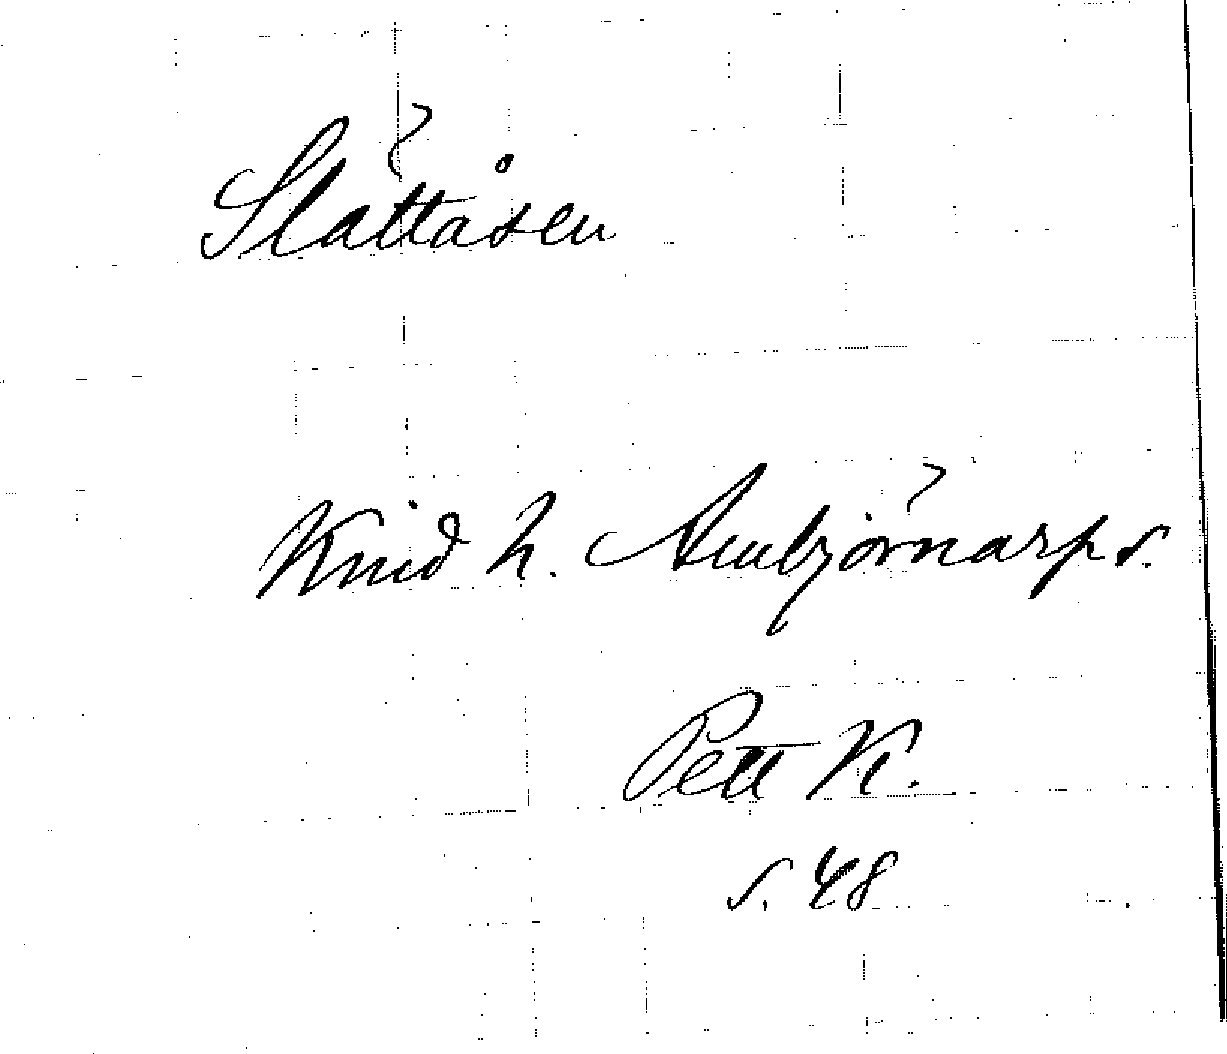 Slättåsen
Kind h. Ambjörnarp s.
Pett K.
s. 48